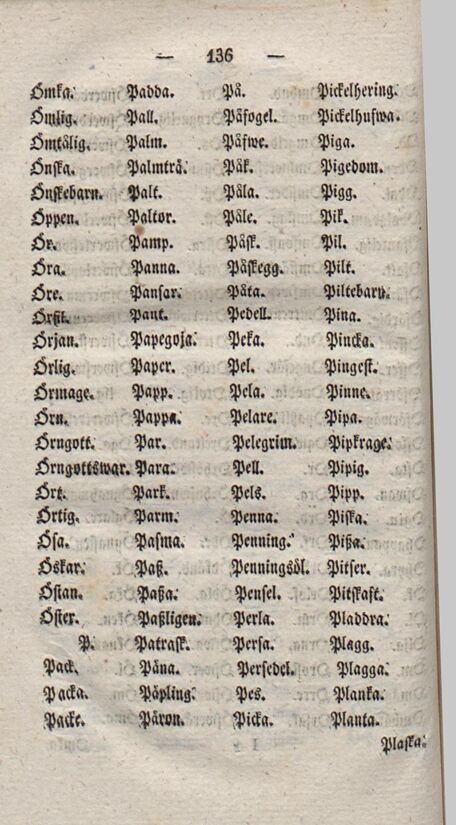 — 136 —
Ömka. Padda. På. Pickelhering.
Ömlig. Pall. Påfogel. Pickelhufwa.
Ömtålig. Palm. Påfwe. Piga.
Önska. Palmträ. Påk. Pigedom.
Önskebarn. Palt. Påla. Pigg.
Öppen. Paltor. Påle. Pik.
Ör. Pamp. Påsk. Pil.
Öra. Panna. Påskegg. Pilt.
Öre. Pansar. Påta. Piltebarn.
Örfil. Pant. Pedell. Pina.
Örjan. Papegoja. Peka. Pincka.
Örlig. Paper. Pel. Pingest.
Örmage. Papp. Pela. Pinne.
Örn. Pappa. Pelare. Pipa.
Örngott. Par. Pelegrim. Pipkrage.
Örngottswar. Para. Pell. Pipig.
Ört. Park. Pels. Pipp.
Örtig. Parm. Penna. Piska.
Ösa. Pasma. Penning. Pißa.
Öskar. Paß. Penningsöl. Pitser.
Östan. Paßa. Pensel. Pitskaft.
Öster. Paßligen. Perla. Pladdra.
P. Patrask. Persa. Plagg.
Pack. Päna. Persedel. Plagga.
Packa. Päpling. Pes. Planka.
Packe. Päron. Picka. Planta.
Plaska.